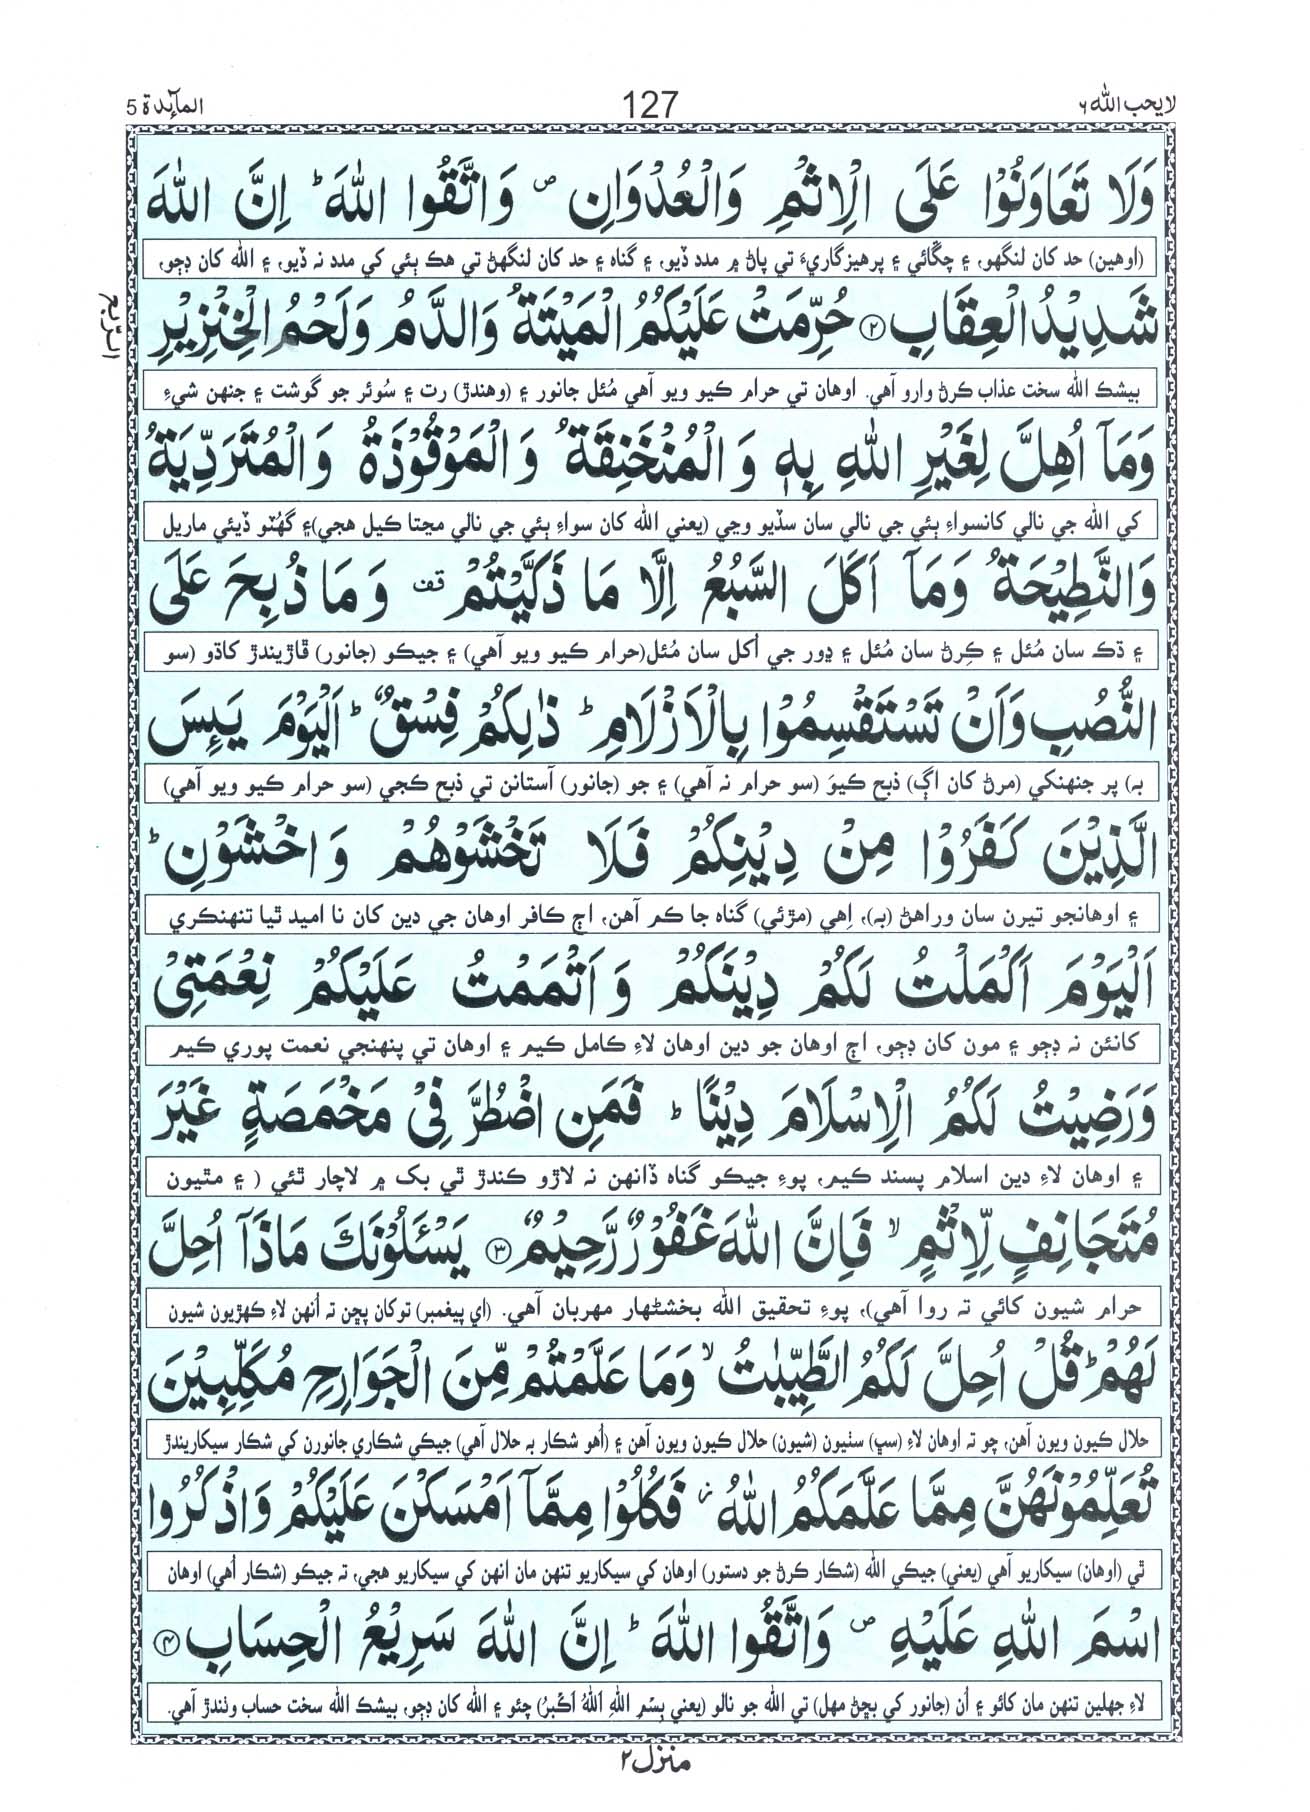 لا يحب الله ٦
127
المآئدة 5
وَلَا تَعَاوَنُوْا عَلَى الْاِثْمِ وَالْعُدْوَانِ ۪ وَاتَّقُوا اللّٰهَ ؕ اِنَّ اللّٰهَ
(اوهين) حد کان لنگهو، ۽ چڱائي ۽ پرهيزگاريءَ تي پاڻ ۾ مدد ڏيو، ۽ گناه ۽ حد کان لنگهڻ تي هڪ ٻئي کي مدد نہ ڏيو، ۽ الله کان ڊڄو،
شَدِيْدُ الْعِقَابِ ﴿۲﴾ حُرِّمَتْ عَلَيْكُمُ الْمَيْتَةُ وَالدَّمُ وَلَحْمُ الْخِنْزِيْرِ
الربع
بيشڪ الله سخت عذاب ڪرڻ وارو آهي. اوهان تي حرام ڪيو ويو آهي مُئل جانور ۽ (وهندڙ) رت ۽ سُوئر جو گوشت ۽ جنهن شيءِ
وَمَآ اُهِلَّ لِغَيْرِ اللّٰهِ بِهٖ وَالْمُنْخَنِقَةُ وَالْمَوْقُوْذَةُ وَالْمُتَرَدِّيَةُ
کي الله جي نالي کانسواءِ ٻئي جي نالي سان سڏيو وڃي (يعني الله کان سواءِ ٻئي جي نالي مڃتا ڪيل هجي)۽ گهُٽو ڏيئي ماريل
وَالنَّطِيْحَةُ وَمَآ اَكَلَ السَّبُعُ اِلَّا مَا ذَكَّيْتُمْ قف وَمَا ذُبِحَ عَلَى
۽ ڌڪ سان مُئل ۽ ڪِرڻ سان مُئل ۽ ڍور جي اُکل سان مُئل(حرام ڪيو ويو آهي) ۽ جيڪو (جانور) ڦاڙيندڙ کاڌو (سو
النُّصُبِ وَاَنْ تَسْتَقْسِمُوْا بِالْاَزْلَامِ ؕ ذٰلِكُمْ فِسْقٌ ؕ اَلْيَوْمَ يَىِٕسَ
بہ) پر جنهنکي (مرڻ کان اڳ) ذبح ڪيوَ (سو حرام نہ آهي) ۽ جو (جانور) آستانن تي ذبح ڪجي (سو حرام ڪيو ويو آهي)
الَّذِيْنَ كَفَرُوْا مِنْ دِيْنِكُمْ فَلَا تَخْشَوْهُمْ وَاخْشَوْنِ ؕ
۽ اوهانجو تيرن سان وراهڻ (بہ)، اِهي (مڙئي) گناه جا ڪم آهن، اڄ ڪافر اوهان جي دين کان نا اميد ٿيا تنهنڪري
اَلْيَوْمَ اَكْمَلْتُ لَكُمْ دِيْنَكُمْ وَاَتْمَمْتُ عَلَيْكُمْ نِعْمَتِيْ
کانئن نہ ڊڄو ۽ مون کان ڊڄو، اڄ اوهان جو دين اوهان لاءِ ڪامل ڪيم ۽ اوهان تي پنهنجي نعمت پوري ڪيم
وَرَضِيْتُ لَكُمُ الْاِسْلَامَ دِيْنًا ؕ فَمَنِ اضْطُرَّ فِيْ مَخْمَصَةٍ غَيْرَ
۽ اوهان لاءِ دين اسلام پسند ڪيم، پوءِ جيڪو گناه ڏانهن نہ لاڙو ڪندڙ ٿي بک ۾ لاچار ٿئي ( ۽ مٿيون
مُتَجَانِفٍ لِّاِثْمٍ ۙ فَاِنَّ اللّٰهَ غَفُوْرٌ رَّحِيْمٌ ﴿۳﴾ يَسْـَٔلُوْنَكَ مَاذَآ اُحِلَّ
حرام شيون کائي تہ روا آهي)، پوءِ تحقيق الله بخشڻهار مهربان آهي. (اي پيغمبر) توکان پڇن تہ اُنهن لاءِ ڪهڙيون شيون
لَهُمْ ؕ قُلْ اُحِلَّ لَكُمُ الطَّيِّبٰتُ ۙ وَمَا عَلَّمْتُمْ مِّنَ الْجَوَارِحِ مُكَلِّبِيْنَ
حلال ڪيون ويون آهن، چو تہ اوهان لاءِ (سڀ) سٺيون (شيون) حلال ڪيون ويون آهن ۽ (اُهو شڪار بہ حلال آهي) جيڪي شڪاري جانورن کي شڪار سيکاريندڙ
تُعَلِّمُوْنَهُنَّ مِمَّا عَلَّمَكُمُ اللّٰهُ ؗ فَكُلُوْا مِمَّآ اَمْسَكْنَ عَلَيْكُمْ وَاذْكُرُوا
ٿي (اوهان) سيکاريو آهي (يعني) جيڪي الله (شڪار ڪرڻ جو دستور) اوهان کي سيکاريو تنهن مان انهن کي سيکاريو هجي، تہ جيڪو (شڪار اُهي) اوهان
اسْمَ اللّٰهِ عَلَيْهِ ۪ وَاتَّقُوا اللّٰهَ ؕ اِنَّ اللّٰهَ سَرِيْعُ الْحِسَابِ ﴿۴﴾
لاءِ جهلين تنهن مان کائو ۽ اُن (جانور کي ڇڏڻ مهل) تي الله جو نالو (يعني بِسْمِ اللهِ اَللهُ اَكْبَرُ) چئو ۽ الله کان ڊڄو، بيشڪ الله سخت حساب وٺندڙ آهي.
منزل ٢